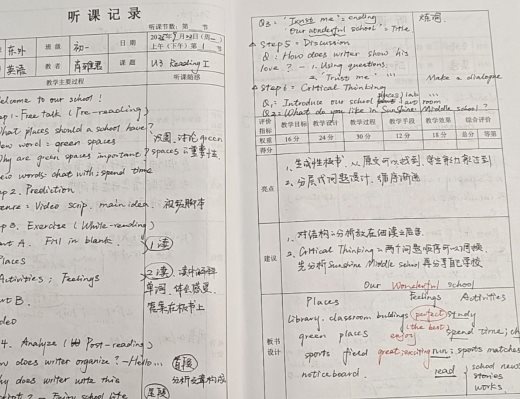 听课记录
听课节数: 第 节
东外 班级 初一 日期
上午(下午)第1节
英语 教者 课题 U3 Reading I
教学主要过程 听课随感
elcome to our school!
ep 1. Free talk (Pre-reading)
hat places should a school have?
ew word: green spaces
hy are green spaces important?
ew words: chat with; spend time
ep 2. Prediction
enre: Video scrip. main idea.
视频脚本
ep 3. Exercise (While-reading)
rt A. Fill in blank.
1读
Places
Activities; Feelings
2读
单词
rt B.
答案在板书上
deo
4. Analyze (Post-reading)
ow does writer organize? - Hello...
hy does writer write this
Fairy school life
Q3: "Trust me"'s ending
"Our wonderful school" = Title
Step 5: Discussion
Q: How does writer show his
love? - 1. Using questions.
2. Trust me
Make a dialogue
Step 6: Critical Thinking
Q1: Introduce our school places
lab
art room
Q2: What do you like in Sunshine Middle school?
评价指标 教学目标 教学设计 教学过程 教学手段 教学效果 综合评价
权重 16分 24分 30分 12分 18分 总分 等第
得分
亮点
1、生成性板书
2、分层式问题设计
建议
1、对结构的分析放在细读之后
2、Critical Thinking的两个问题顺序可以调换
先分析Sunshine Middle school再分享自己学校
板书设计
Our Wonderful school
Places Feelings Activities
library, classroom buildings perfect study
green places enjoy the best spend time; ch
sports field great; exciting run; sports matches
notice board read school news
stories
works